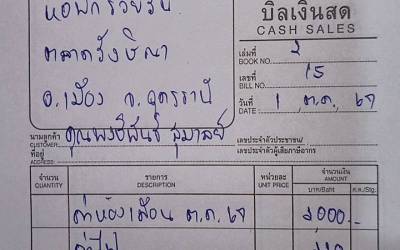 หอพักรายวัน
บิลเงินสด
CASH SALES
ตลาดรังษิณา
เล่มที่ 2
BOOK NO.
อ.เมือง จ.อุดรธานี
เลขที่ 15
BILL NO.
วันที่ 1 ต.ค. 67
DATE
นามลูกค้า คุณพงษ์พันธ์ สุมาลย์
CUSTOMER
เลขประจำตัวประชาชน/
เลขประจำตัวผู้เสียภาษีอากร
ที่อยู่
ADDRESS
จำนวน รายการ หน่วยละ จำนวนเงิน
QUANTITY DESCRIPTION UNIT PRICE บาท/Baht ส.ต./Stg.
ค่าห้องเดือน ต.ค. 67